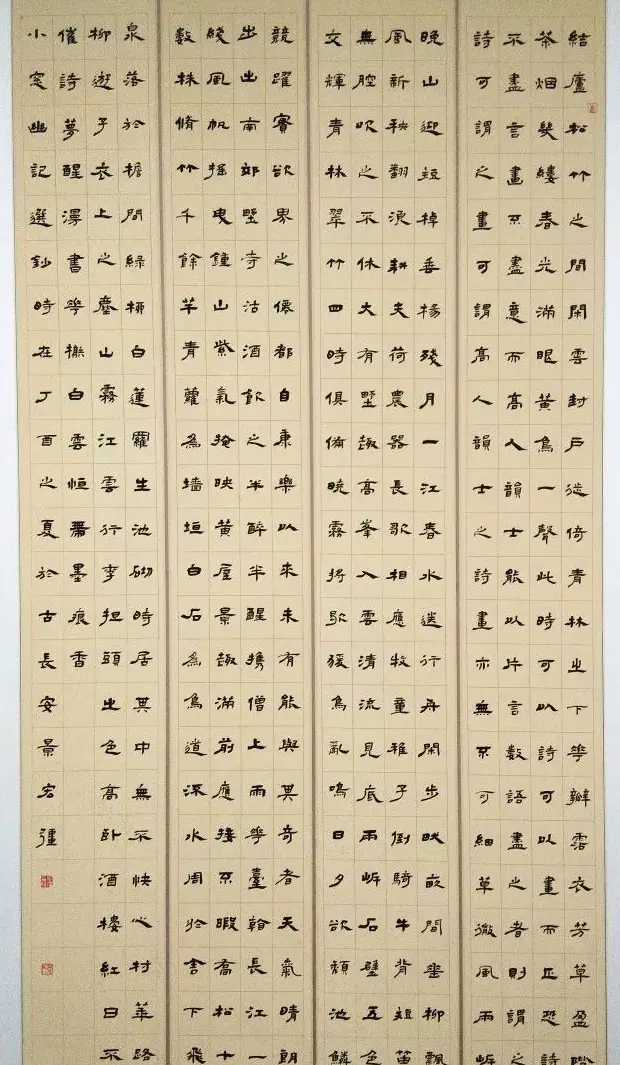 結廬松竹之間閑雲封戶徙倚青林之下花瓣霑衣芳草盈階
茶烟幾縷春光滿眼黃鳥一聲此時可以詩可以畫而正恐詩
不盡言畫不盡意而高人韻士能以片言數語盡之者則謂之
詩可謂之畫可謂高人韻士之詩畫亦無不可細草微風兩岸
晚山迎短棹垂楊殘月一江春水送行舟閑步畎畝間垂柳飄
風新秧翻浪耕夫荷農器長歌相應牧童稚子倒騎牛背短笛
無腔吹之不休大有野趣高峯入雲清流見底兩岸石壁五色
交輝青林翠竹四時俱備曉霧將歇猿鳥亂鳴日夕欲頹池鱗
競躍實欲界之僊都自康樂以來未有能與其奇者天氣晴朗
出南郊野寺沽酒飲之半醉半醒攜僧上雨花臺長江一
綫風帆搖曳鐘山紫氣掩映黃屋景趣滿前應接不暇喬松十
數株脩竹千餘竿青蘿為墻垣白石為鳥道流水周於舍下飛
泉落於檐間綠柳白蓮羅生池砌時居其中無不快心村華路
柳遊子衣上之塵山霧江雲行李担頭之色高臥酒樓紅日不
催詩夢醒漫書花榭白雲恒帶墨痕香
小窗幽記選鈔時在丁酉之夏於古長安景宏彊